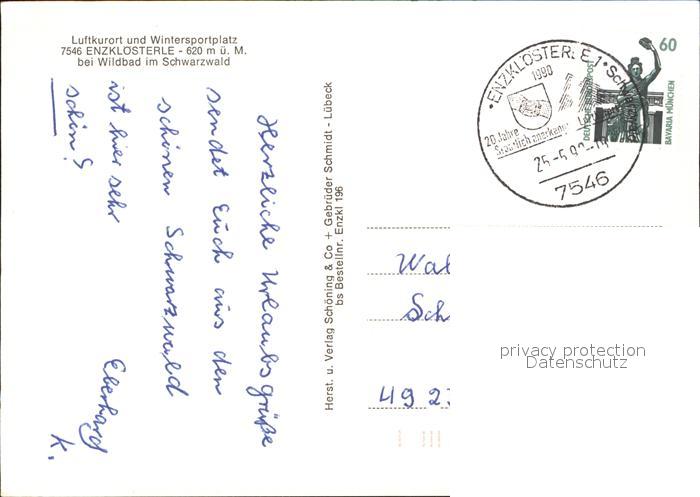 Luftkurort und Wintersportplatz
7546 ENZKLÖSTERLE - 620 m ü. M.
bei Wildbad im Schwarzwald
Herzliche Urlaubsgrüße
sendet Euch aus den
schönen Schwarzwald
ist hier sehr
schön!
Eberhard
K.
Herst. u. Verlag Schöning & Co + Gebrüder Schmidt - Lübeck
bs Bestellnr. Enzkl 196
ENZKLÖSTERLE 1
1990
20 Jahre
Staatlich anerkannt
7546
60
DEUTSCHE BUNDESPOST
BAVARIA MÜNCHEN
Wal
Sch
49 2
privacy protection
Datenschutz